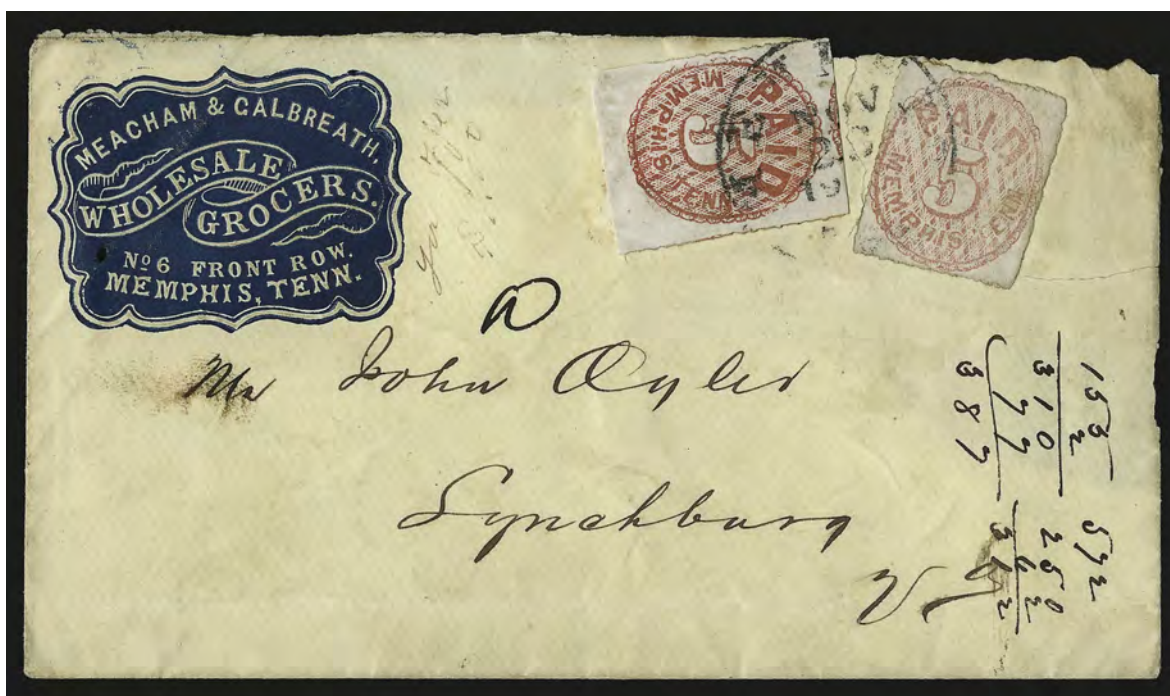 MEACHAM & GALBREATH,
WHOLESALE
GROCERS.
No 6 FRONT ROW.
MEMPHIS, TENN.
PAID
5
MEMPHIS, TENN
PAID
5
MEMPHIS, TENN
Mr John Oyler
Lynchburg
Va
155
2
310
77
387
572
250
62